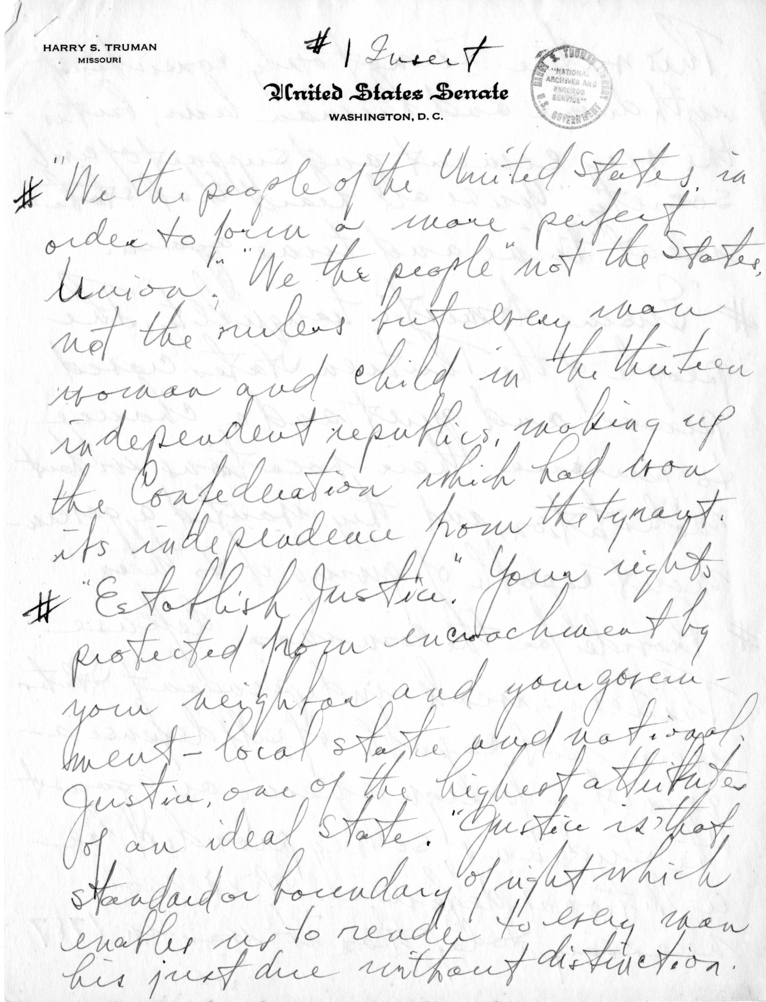 HARRY S. TRUMAN
MISSOURI
# 1 Insert
United States Senate
WASHINGTON, D. C.
HARRY S. TRUMAN LIBRARY
"NATIONAL
ARCHIVES AND
RECORDS
SERVICE"
U.S. GOVERNMENT
# "We the people of the United States, in
order to form a more perfect
Union." "We the people" not the States,
not the rulers but every man
woman and child in the thirteen
independent republics, making up
the Confederation which had won
its independence from the tyrant.
# "Establish Justice." Your rights
protected from encroachment by
your neighbor and your govern-
ment – local state and national.
Justice, one of the highest attributes
of an ideal State. "Justice is that
standard or boundary of right which
enables us to render to every man
his just due without distinction.